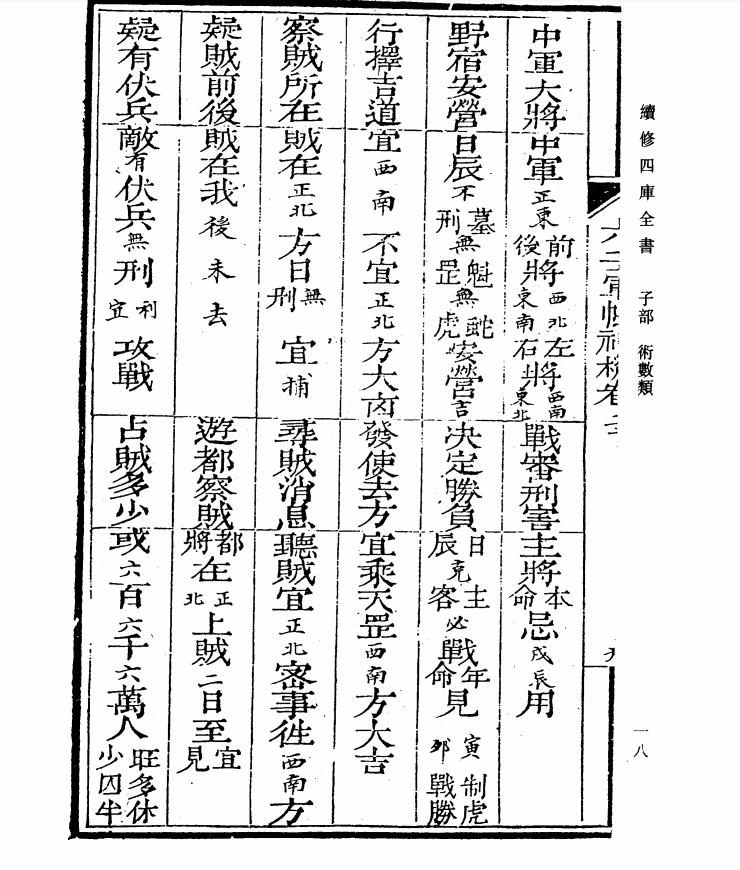 續修四庫全書　子部　術數類
一八
中軍大將中軍正東前將西北後將東南左將西南右將東北戰審刑害主將本命忌戌辰用
野宿安營日辰不墓刑無魁罡無蛇虎安營吉決定勝負日辰克主客必戰年命見寅卯制虎戰勝
行擇吉道宜西南不宜正北方大凶發使去方宜乘天罡西南方大吉
察賊所在賊在正北方日無刑宜捕尋賊消息聽賊宜正北密事徃西南方
疑賊前後賊在我後未去遊都察賊都將在正北上賊二日至宜見
疑有伏兵敵有伏兵無刑利宜攻戰占賊多少或六百六千六萬人旺多休少囚半